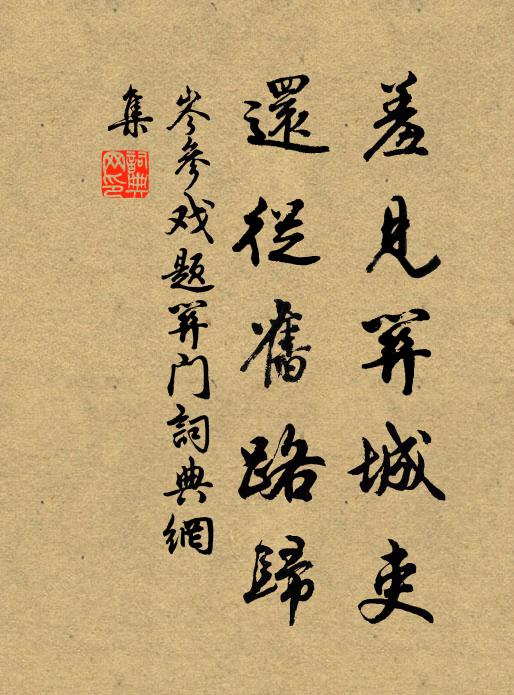 羞見關城吏
還從舊路歸
岑參戏題關门詞典網
集
詞典
网印